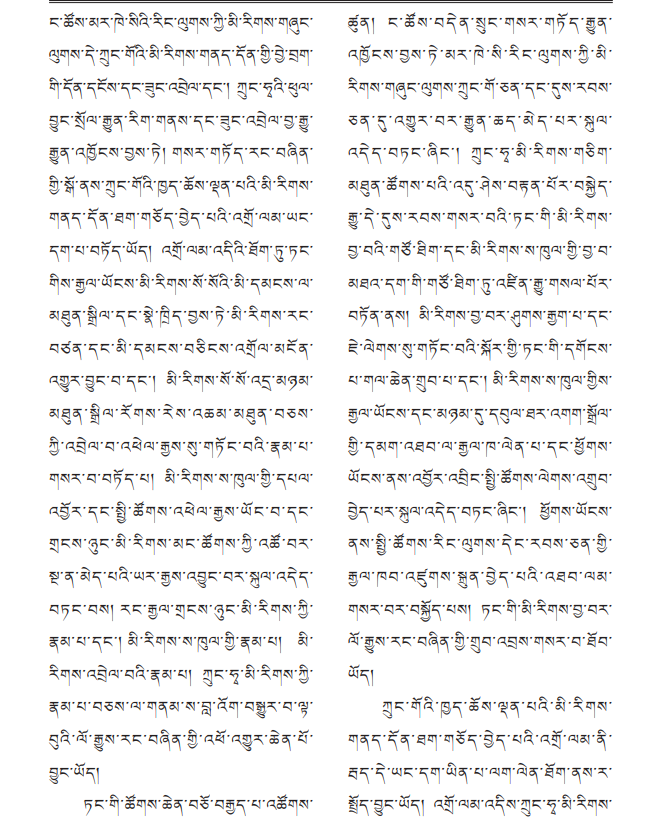 ང་ཚོས་མར་ཁེ་སིའི་རིང་ལུགས་ཀྱི་མི་རིགས་གཞུང་
ལུགས་དེ་ཀྲུང་གོའི་མི་རིགས་གནད་དོན་གྱི་བྱེ་བྲག་
གི་དོན་དངོས་དང་ཟུང་འབྲེལ་དང་། ཀྲུང་ཧྭའི་ཕུལ་
བྱུང་སྲོལ་རྒྱུན་རིག་གནས་དང་ཟུང་འབྲེལ་བྱ་རྒྱུ་
རྒྱུན་འཁྱོངས་བྱས་ཏེ། གསར་གཏོད་རང་བཞིན་
གྱི་སྒོ་ནས་ཀྲུང་གོའི་ཁྱད་ཆོས་ལྡན་པའི་མི་རིགས་
གནད་དོན་ཐག་གཅོད་བྱེད་པའི་འགྲོ་ལམ་ཡང་
དག་པ་བཏོད་ཡོད། འགྲོ་ལམ་འདིའི་ཐོག་ཏུ་ཏང་
གིས་རྒྱལ་ཡོངས་མི་རིགས་སོ་སོའི་མི་དམངས་ལ་
མཐུན་སྒྲིལ་དང་སྣེ་ཁྲིད་བྱས་ཏེ་མི་རིགས་རང་
བཙན་དང་མི་དམངས་བཅིངས་འགྲོལ་མངོན་
འགྱུར་བྱུང་བ་དང་། མི་རིགས་སོ་སོ་འདྲ་མཉམ་
མཐུན་སྒྲིལ་རོགས་རེས་འཆམ་མཐུན་བཅས་
ཀྱི་འབྲེལ་བ་འཕེལ་རྒྱས་སུ་གཏོང་བའི་རྣམ་པ་
གསར་བ་བཏོད་པ། མི་རིགས་ས་ཁུལ་གྱི་དཔལ་
འབྱོར་དང་སྤྱི་ཚོགས་འཕེལ་རྒྱས་ཡོང་བ་དང་
གྲངས་ཉུང་མི་རིགས་མང་ཚོགས་ཀྱི་འཚོ་བར་
སྔ་ན་མེད་པའི་ཡར་རྒྱས་འབྱུང་བར་སྐུལ་འདེད་
བཏང་བས། རང་རྒྱལ་གྲངས་ཉུང་མི་རིགས་ཀྱི་
རྣམ་པ་དང་། མི་རིགས་ས་ཁུལ་གྱི་རྣམ་པ། མི་
རིགས་འབྲེལ་བའི་རྣམ་པ། ཀྲུང་ཧྭ་མི་རིགས་ཀྱི་
རྣམ་པ་བཅས་ལ་གནམ་ས་བླ་འོག་བསྒྱུར་བ་ལྟ་
བུའི་ལོ་རྒྱུས་རང་བཞིན་གྱི་འཕོ་འགྱུར་ཆེན་པོ་
བྱུང་ཡོད།
ཏང་གི་ཚོགས་ཆེན་བཅོ་བརྒྱད་པ་འཚོགས་
ཚུན། ང་ཚོས་བདེན་སྲུང་གསར་གཏོད་རྒྱུན་
འཁྱོངས་བྱས་ཏེ་མར་ཁེ་སི་རིང་ལུགས་ཀྱི་མི་
རིགས་གཞུང་ལུགས་ཀྲུང་གོ་ཅན་དང་དུས་རབས་
ཅན་དུ་འགྱུར་བར་རྒྱུན་ཆད་མེད་པར་སྐུལ་
འདེད་བཏང་ཞིང་། ཀྲུང་ཧྭ་མི་རིགས་གཅིག་
མཐུན་ཚོགས་པའི་འདུ་ཤེས་བརྟན་པོར་བསྐྱེད་
རྒྱུ་དེ་དུས་རབས་གསར་བའི་ཏང་གི་མི་རིགས་
བྱ་བའི་གཙོ་ཐིག་དང་མི་རིགས་ས་ཁུལ་གྱི་བྱ་བ་
མཐའ་དག་གི་གཙོ་ཐིག་ཏུ་འཛིན་རྒྱུ་གསལ་པོར་
བཏོན་ནས། མི་རིགས་བྱ་བར་ཤུགས་རྒྱག་པ་དང་
ཇེ་ལེགས་སུ་གཏོང་བའི་སྐོར་གྱི་ཏང་གི་དགོངས་
པ་གལ་ཆེན་གྲུབ་པ་དང་། མི་རིགས་ས་ཁུལ་གྱིས་
རྒྱལ་ཡོངས་དང་མཉམ་དུ་དབུལ་ཐར་འགག་སྒྲོལ་
གྱི་དམག་འཐབ་ལ་རྒྱལ་ཁ་ལེན་པ་དང་ཕྱོགས་
ཡོངས་ནས་འབྱོར་འབྲིང་སྤྱི་ཚོགས་ལེགས་འགྲུབ་
བྱེད་པར་སྐུལ་འདེད་བཏང་ཞིང་། ཕྱོགས་ཡོངས་
ནས་སྤྱི་ཚོགས་རིང་ལུགས་དེང་རབས་ཅན་གྱི་
རྒྱལ་ཁབ་འཛུགས་སྐྲུན་བྱེད་པའི་འཐབ་ལམ་
གསར་བར་བསྐྱོད་པས། ཏང་གི་མི་རིགས་བྱ་བར་
ལོ་རྒྱུས་རང་བཞིན་གྱི་གྲུབ་འབྲས་གསར་བ་ཐོབ་
ཡོད།
ཀྲུང་གོའི་ཁྱད་ཆོས་ལྡན་པའི་མི་རིགས་
གནད་དོན་ཐག་གཅོད་བྱེད་པའི་འགྲོ་ལམ་ནི་
རྦད་དེ་ཡང་དག་ཡིན་པ་ལག་ལེན་ཐོག་ནས་ར་
སྤྲོད་བྱུང་ཡོད། འགྲོ་ལམ་འདིས་ཀྲུང་ཧྭ་མི་རིགས་